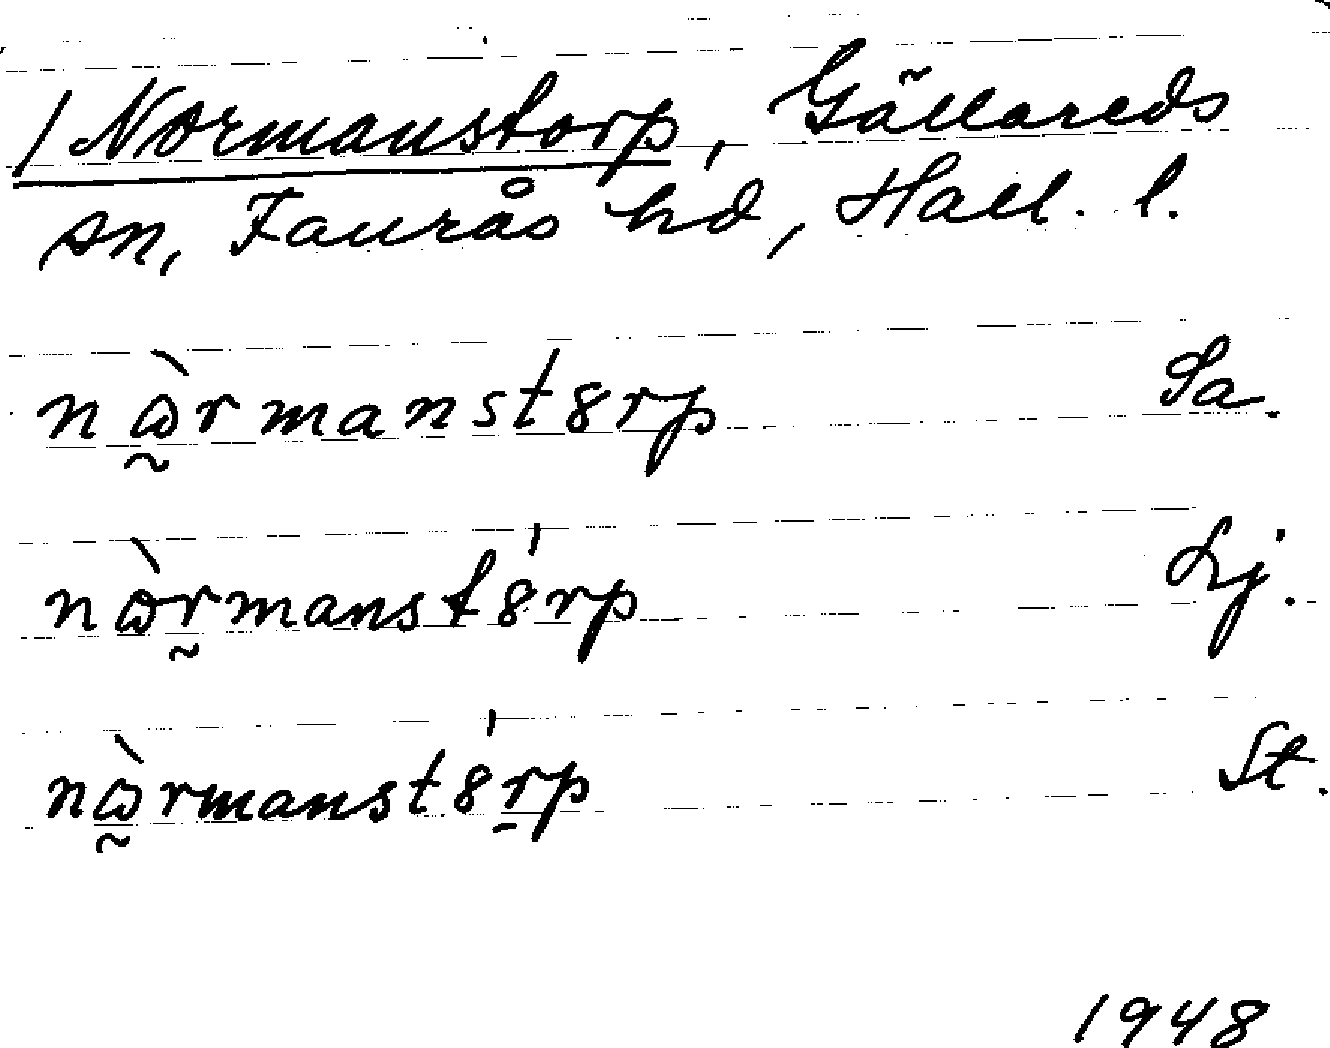 1 Normanstorp, Gällareds
sn, Faurås hd, Hall. l.
nɷ̰̀rmanst8rp Sa.
nɷ̀r̰manst8́rp Lj.
nɷ̰̀rmanst8́r̠p St.
1948